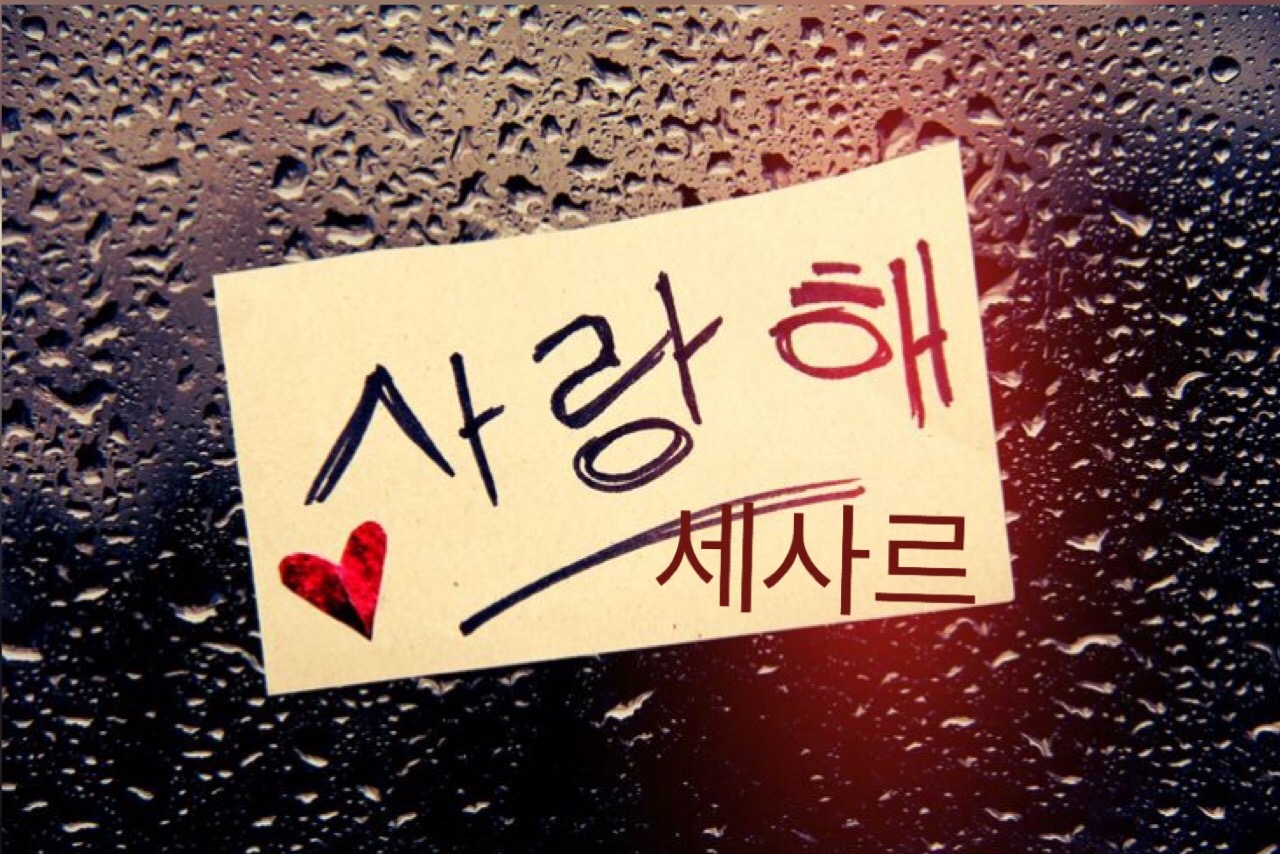 사랑해
세사르